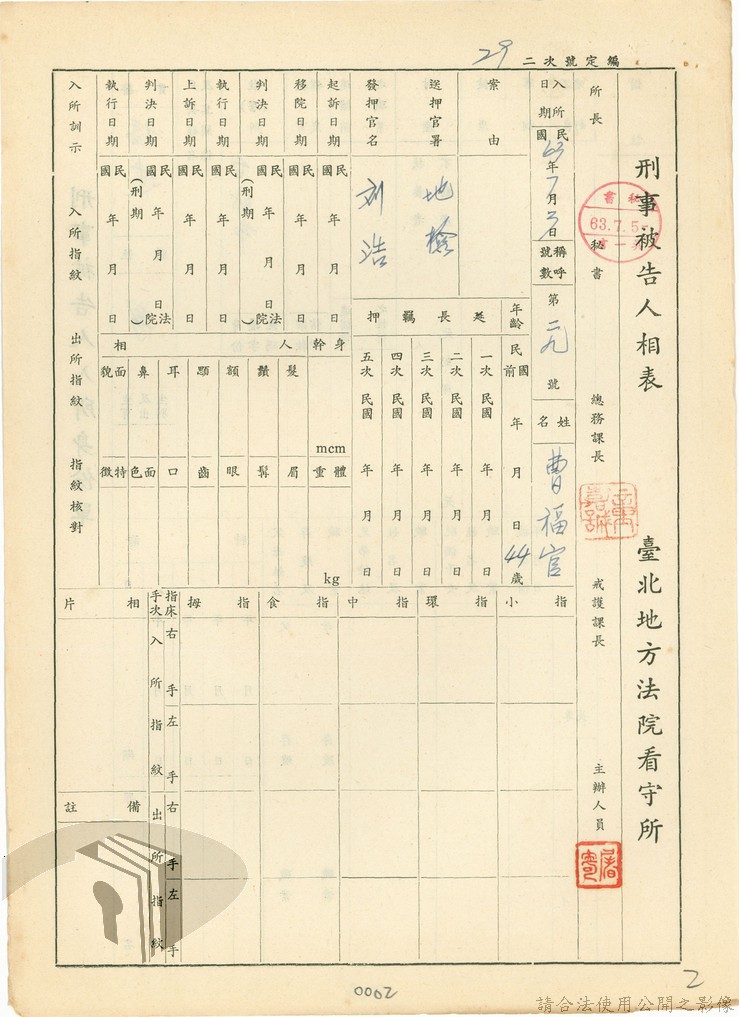 編定號次二 29
刑事被告人相表 臺北地方法院看守所
所長 秘書 總務課長 戒護課長 主辦人員
63.7.5
入所日期 民國63年7月3日
稱呼號數 第二九號
姓名 曹福官
年齡 民國前 年 月 日 44歲
案由
送押官署 地檢
發押官名 刘浩
延長羈押
一次 民國 年 月 日
二次 民國 年 月 日
三次 民國 年 月 日
四次 民國 年 月 日
五次 民國 年 月 日
起訴日期 民國 年 月 日
移院日期 民國 年 月 日
判決日期 民國 年 月 日 (刑期 法院)
執行日期 民國 年 月 日
上訴日期 民國 年 月 日
判決日期 民國 年 月 日 (刑期 法院)
執行日期 民國 年 月 日
人相
身幹 mcm
體重 kg
髮 眉
鬚 髯
額 眼
顋 齒
耳 口
鼻 面色
面貌 特徵
入所訓示 入所指紋 出所指紋 指紋核對
指床 手次 拇指 食指 中指 環指 小指
入所指紋 右手 左手
出所指紋 右手 左手
相片
備註
0002
2
請合法使用公開之影像